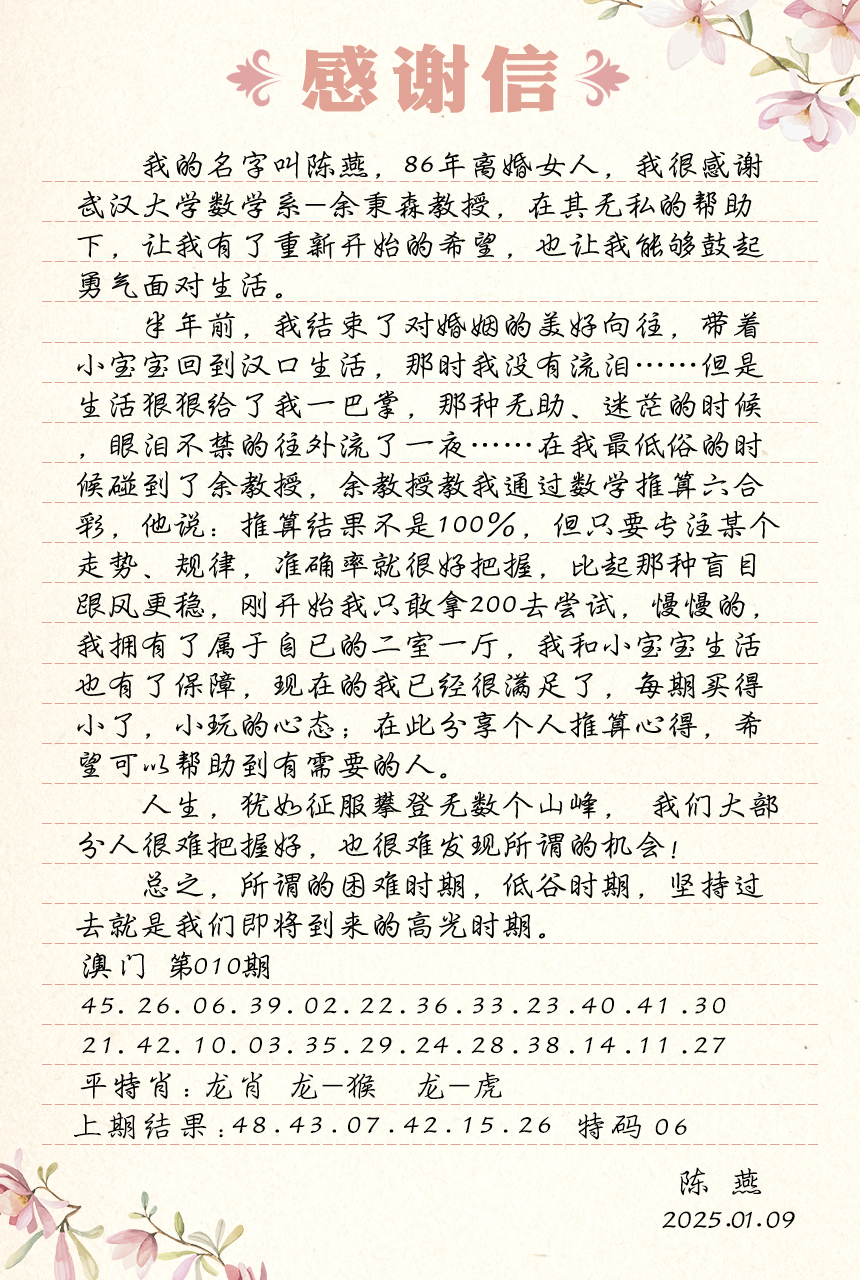 感谢信
我的名字叫陈燕，86年离婚女人，我很感谢
武汉大学数学系—余秉森教授，在其无私的帮助
下，让我有了重新开始的希望，也让我能够鼓起
勇气面对生活。
半年前，我结束了对婚姻的美好向往，带着
小宝宝回到汉口生活，那时我没有流泪……但是
生活狠狠给了我一巴掌，那种无助、迷茫的时候
，眼泪不禁的往外流了一夜……在我最低俗的时
候碰到了余教授，余教授教我通过数学推算六合
彩，他说：推算结果不是100%，但只要专注某个
走势、规律，准确率就很好把握，比起那种盲目
跟风更稳，刚开始我只敢拿200去尝试，慢慢的，
我拥有了属于自已的二室一厅，我和小宝宝生活
也有了保障，现在的我已经很满足了，每期买得
小了，小玩的心态；在此分享个人推算心得，希
望可以帮助到有需要的人。
人生，犹如征服攀登无数个山峰， 我们大部
分人很难把握好，也很难发现所谓的机会！
总之，所谓的困难时期，低谷时期，坚持过
去就是我们即将到来的高光时期。
澳门 第010期
45.26.06.39.02.22.36.33.23.40.41.30
21.42.10.03.35.29.24.28.38.14.11.27
平特肖：龙肖 龙—猴 龙—虎
上期结果：48.43.07.42.15.26 特码 06
陈 燕
2025.01.09